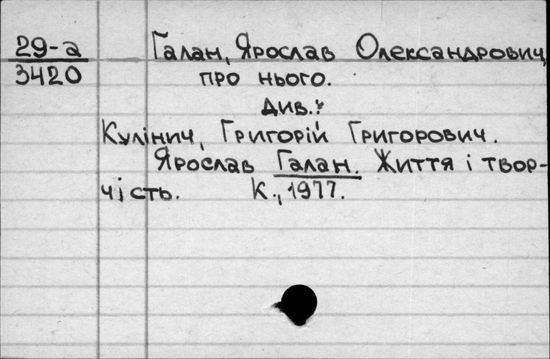 29-а
3420
Галан, Ярослав Олександрович,
про нього.
Див.:
Кулінич, Григорій Григорович.
Ярослав Галан. Життя і твор-
чість. К., 1977.